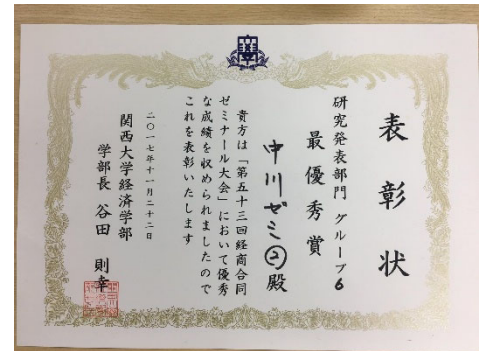 表彰状
研究発表部門 グループ6
最優秀賞
中川ゼミ② 殿
貴方は「第五十三回経商合同
ゼミナール大会」において優秀
な成績を収められましたので
これを表彰いたします
二〇一七年十一月二十二日
関西大学経済学部
学部長 谷田 則幸